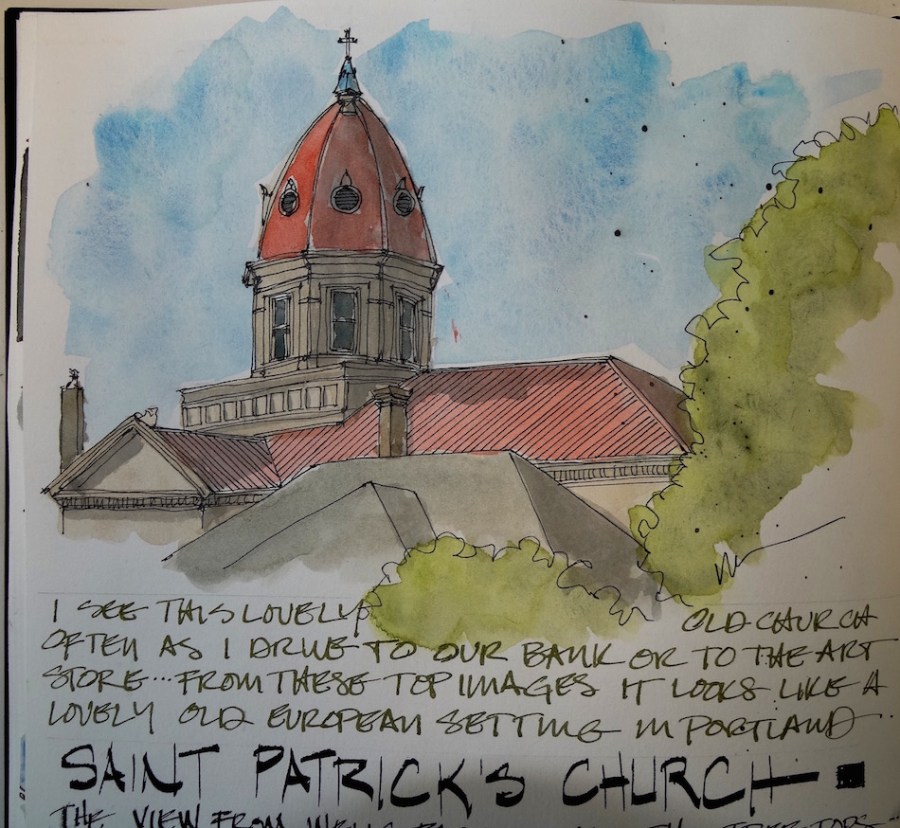 I SEE THIS LOVELY OLD CHURCH
OFTEN AS I DRIVE TO OUR BANK OR TO THE ART
STORE... FROM THESE TOP IMAGES IT LOOKS LIKE A
LOVELY OLD EUROPEAN SETTING IN PORTLAND...
SAINT PATRICK'S CHURCH
THE VIEW FROM